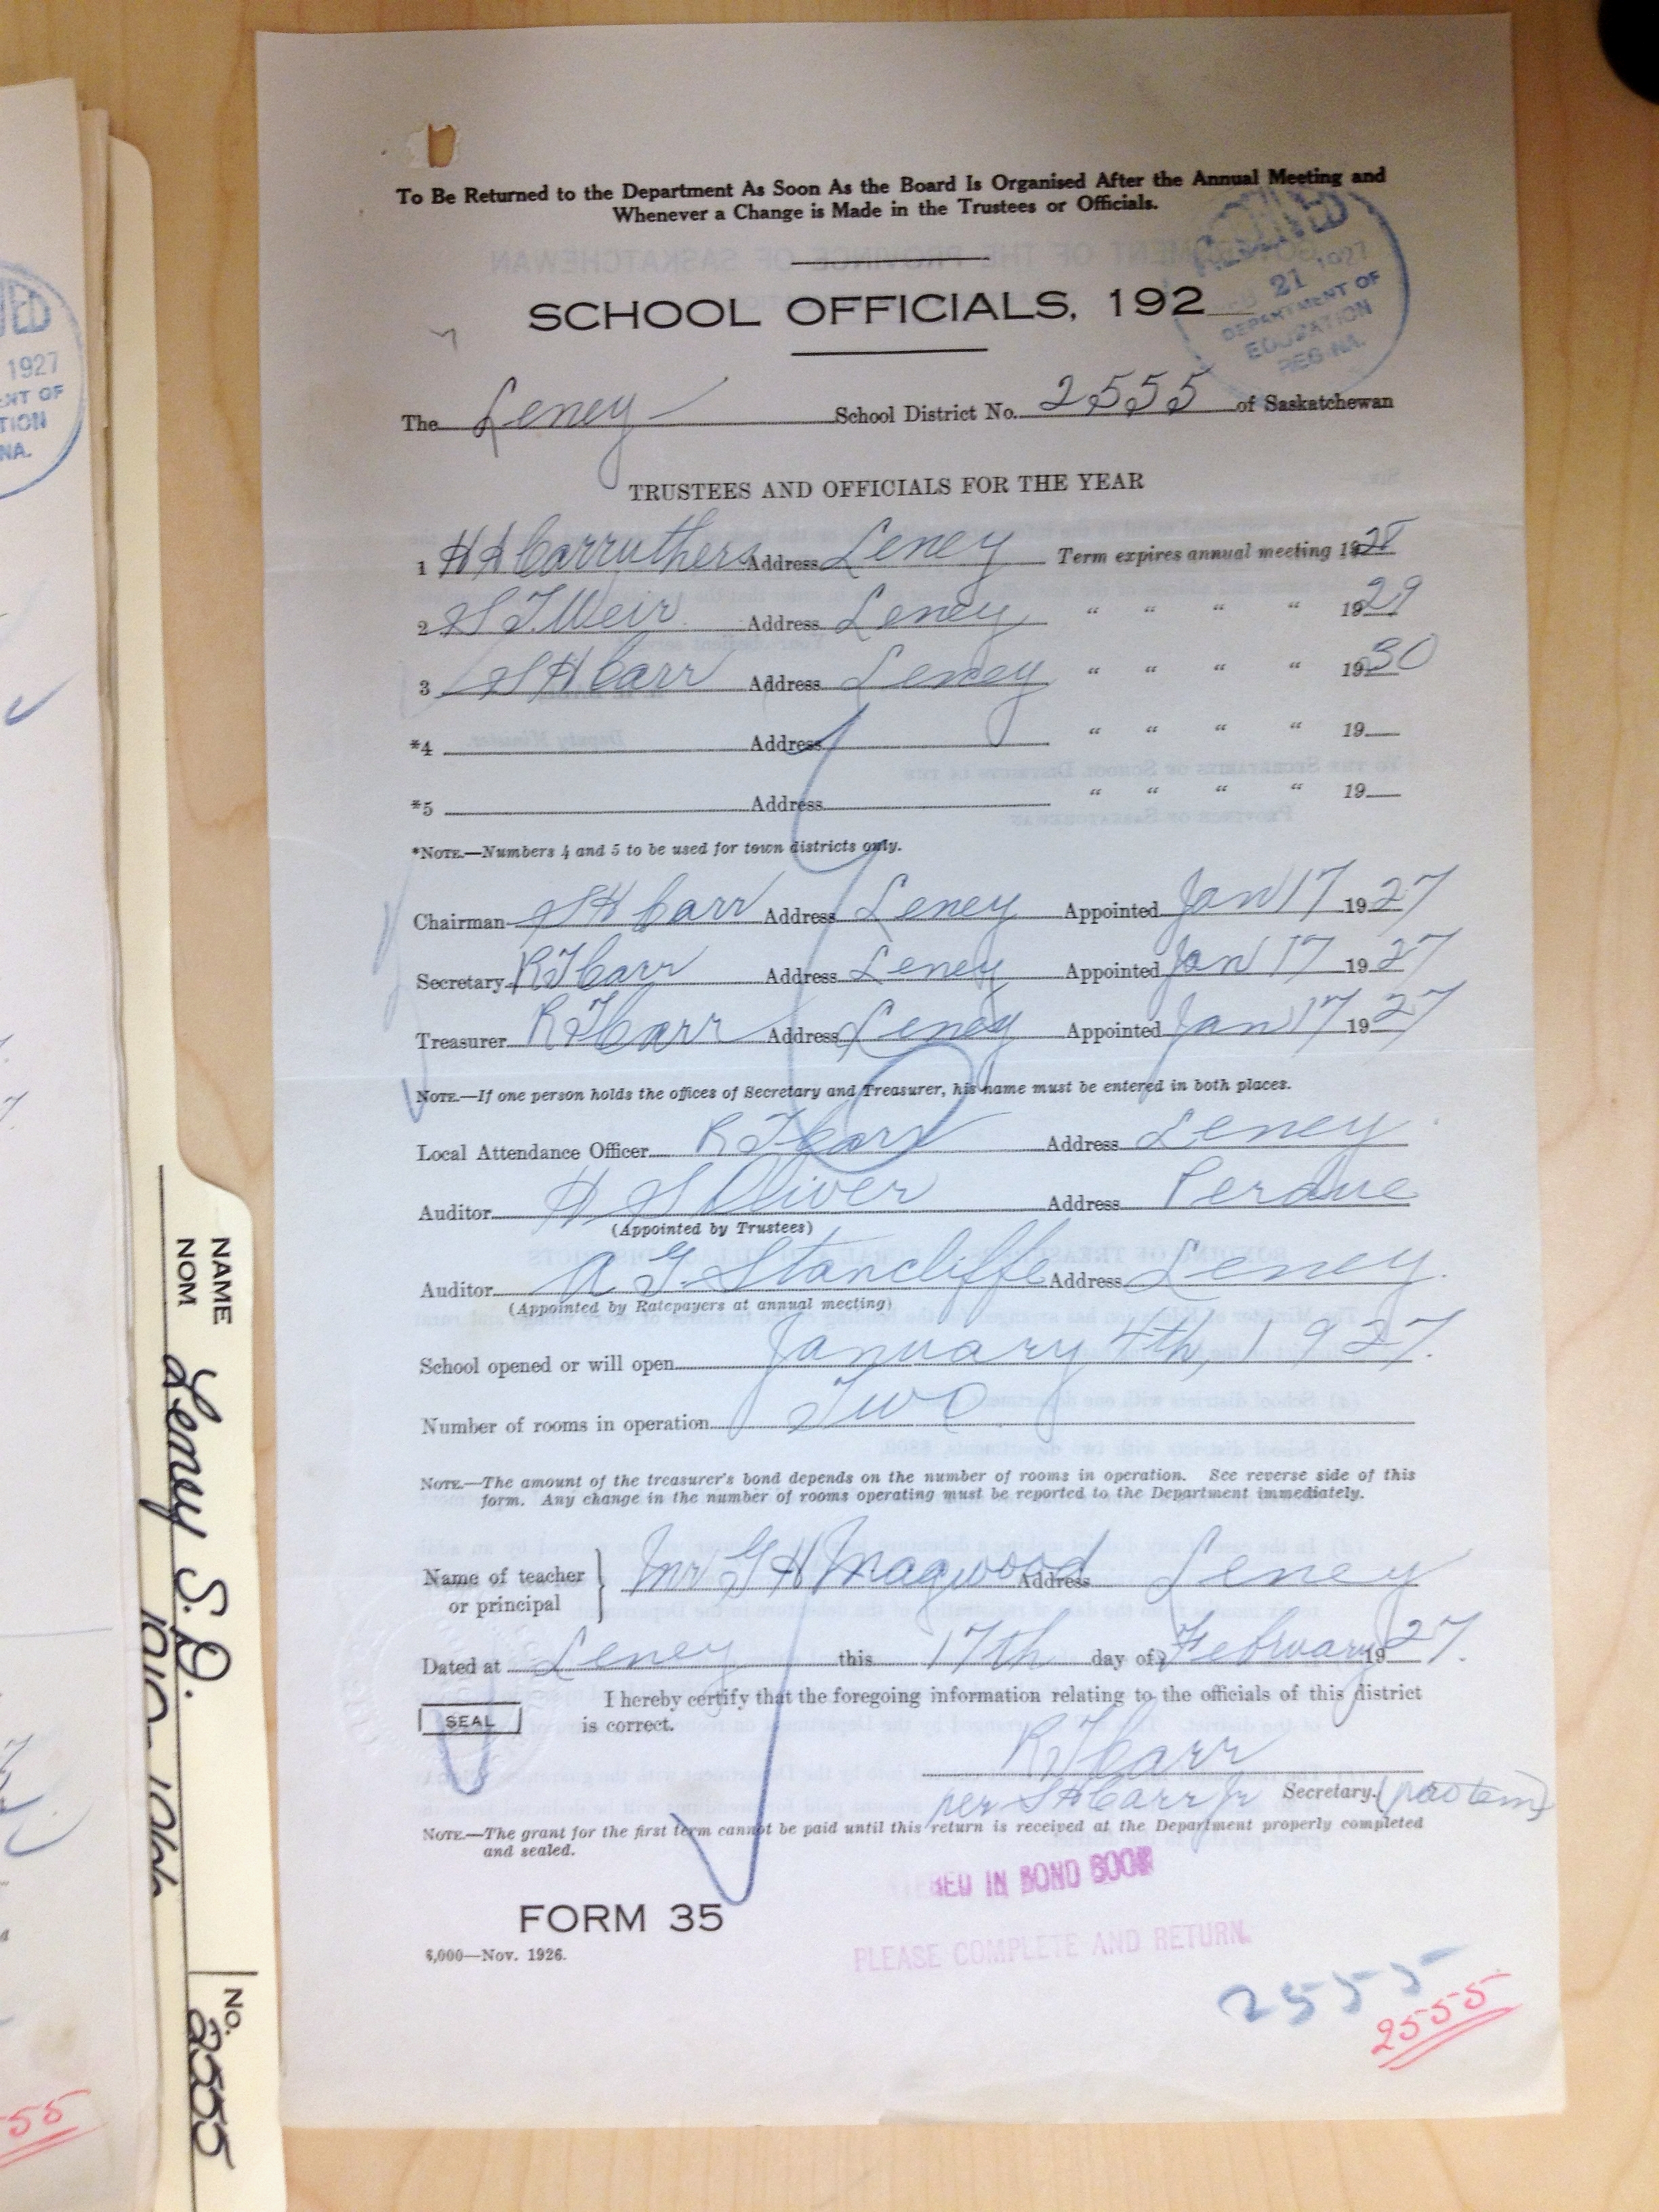 To Be Returned to the Department As Soon As the Board Is Organised After the Annual Meeting and
Whenever a Change is Made in the Trustees or Officials.
RECEIVED
21 1927
DEPARTMENT OF
EDUCATION
REGINA.
SCHOOL OFFICIALS, 192
The Leney School District No. 2555 of Saskatchewan
TRUSTEES AND OFFICIALS FOR THE YEAR
1 H A Carruthers Address Leney Term expires annual meeting 1928
2 S T Weir Address Leney " " " " 1929
3 S H Carr Address Leney " " " " 1930
*4 Address " " " " 19
*5 Address " " " " 19
*NOTE.—Numbers 4 and 5 to be used for town districts only.
Chairman S H Carr Address Leney Appointed Jan 17 1927
Secretary R T Carr Address Leney Appointed Jan 17 1927
Treasurer R T Carr Address Leney Appointed Jan 17 1927
NOTE.—If one person holds the offices of Secretary and Treasurer, his name must be entered in both places.
Local Attendance Officer R T Carr Address Leney
Auditor H S Oliver Address Perdue
(Appointed by Trustees)
Auditor A G. Stancliffe Address Leney.
(Appointed by Ratepayers at annual meeting)
School opened or will open January 4th, 1927.
Number of rooms in operation Two
NOTE.—The amount of the treasurer's bond depends on the number of rooms in operation. See reverse side of this
form. Any change in the number of rooms operating must be reported to the Department immediately.
Name of teacher
or principal } Mr G H Magwood Address Leney
Dated at Leney this 17th day of February 1927.
I hereby certify that the foregoing information relating to the officials of this district
SEAL is correct.
R T Carr
per S H Carr Jr Secretary. (pro tem)
NOTE.—The grant for the first term cannot be paid until this return is received at the Department properly completed
and sealed.
IN BOND BOOK
FORM 35
PLEASE COMPLETE AND RETURN.
6,000—Nov. 1926.
2555
2555
NAME
NOM
Leney S.D.
NO.
2555
1927
55